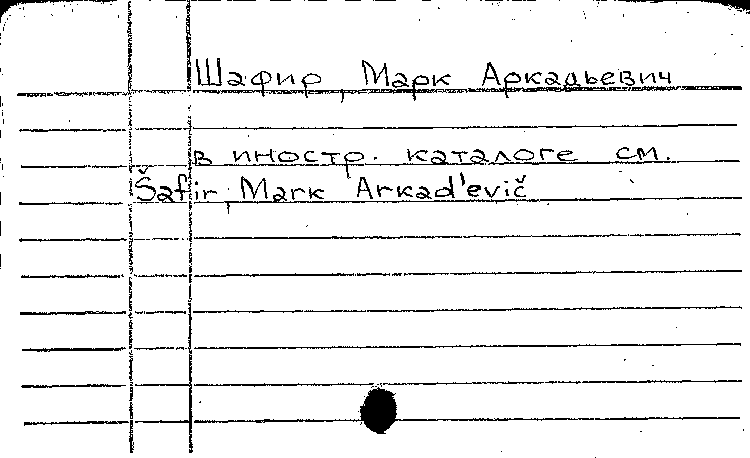 Шафир, Марк Аркадьевич
в иностр. каталоге см.
Šafir, Mark Arkad'evič